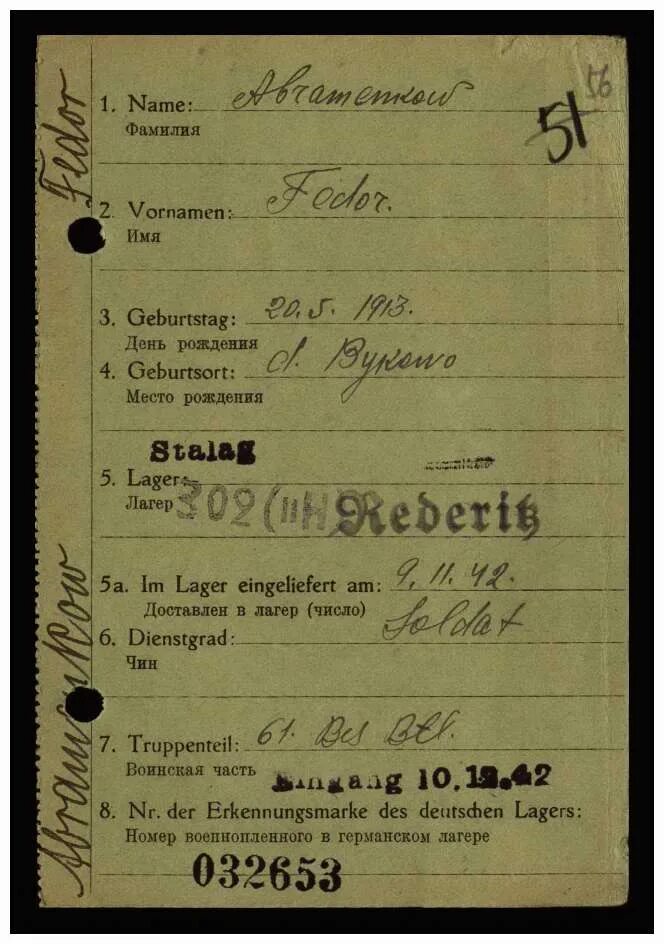 56
51
1. Name: Abramenkow
Фамилия
2. Vornamen: Fedor.
Имя
3. Geburtstag: 20.5. 1913.
День рождения
4. Geburtsort: d. Bykowo
Место рождения
Stalag
5. Lager:
Лагер 302 (IIH) Rederitz
5a. Im Lager eingeliefert am: 9. 11. 42.
Доставлен в лагер (число)
6. Dienstgrad: Soldat
Чин
7. Truppenteil: 61. Bes Btl.
Воинская часть Eingang 10.12.42
8. Nr. der Erkennungsmarke des deutschen Lagers:
Номер военнопленного в германском лагере
032653
Abramenkow Fedor